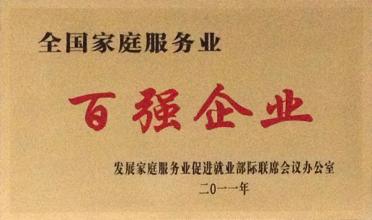 全国家庭服务业
百强企业
发展家庭服务业促进就业部际联席会议办公室
二〇一一年